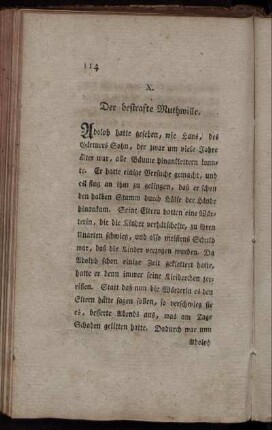 114
X.
Der bestrafte Muthwille.
Adolph hatte gesehen, wie Hans, des
Gärtners Sohn, der zwar um viele Jahre
älter war, alle Bäume hinanklettern konn-
te. Er hatte einige Versuche gemacht, und
es fing an ihm zu gelingen, daß er schon
den halben Stamm durch Hülfe der Hände
hinankam. Seine Eltern hatten eine Wär-
terin, die die Kinder verhätschelte, zu ihren
Unarten schwieg, und also meistens Schuld
war, daß die Kinder verzogen wurden. Da
Adolph schon einige Zeit geklettert hatte,
hatte er denn immer seine Kleiderchen zer-
rissen. Statt daß nun die Wärterin es den
Eltern hätte sagen sollen, so verschwieg sie
es, besserte Abends aus, was am Tage
Schaden gelitten hatte. Dadurch war nun
Adolph